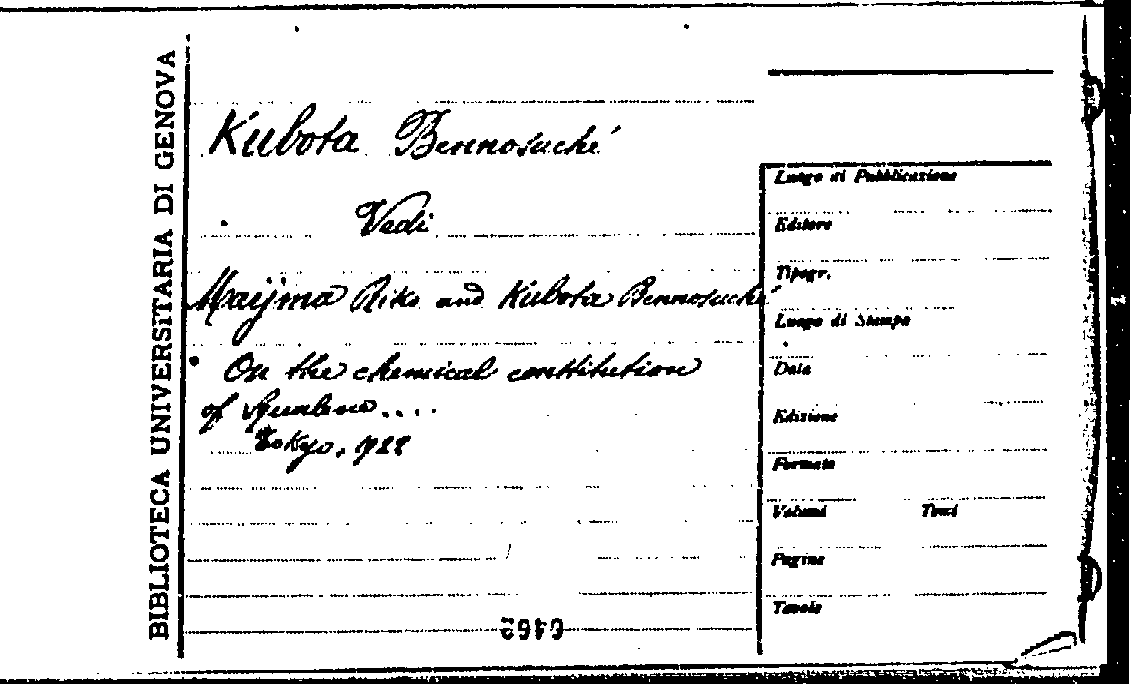 BIBLIOTECA UNIVERSITARIA DI GENOVA
Kubota Bennosuché
Vedi
Maijma Riko and Kubota Bennosuché
On the chemical constitution
of Squalene....
Tokyo, 1922
Luogo di Pubblicazione
Editore
Tipogr.
Luogo di Stampa
Data
Edizione
Formato
Volumi Tomi
Pagine
Tavole